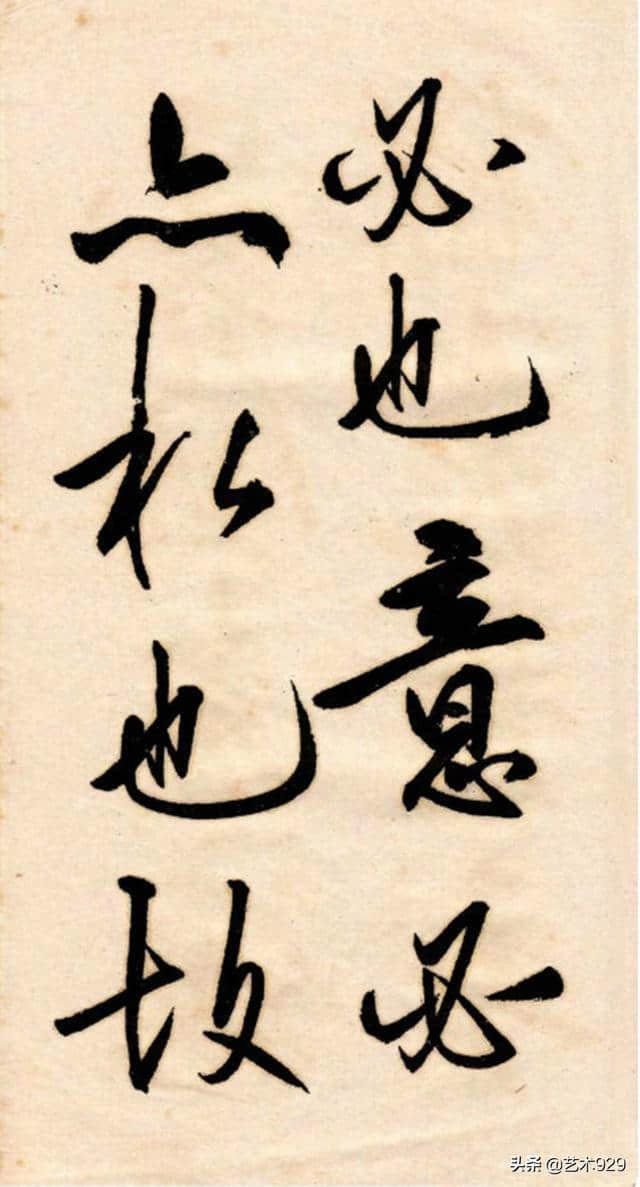 必也意必
亦私也故
头条 @艺术929